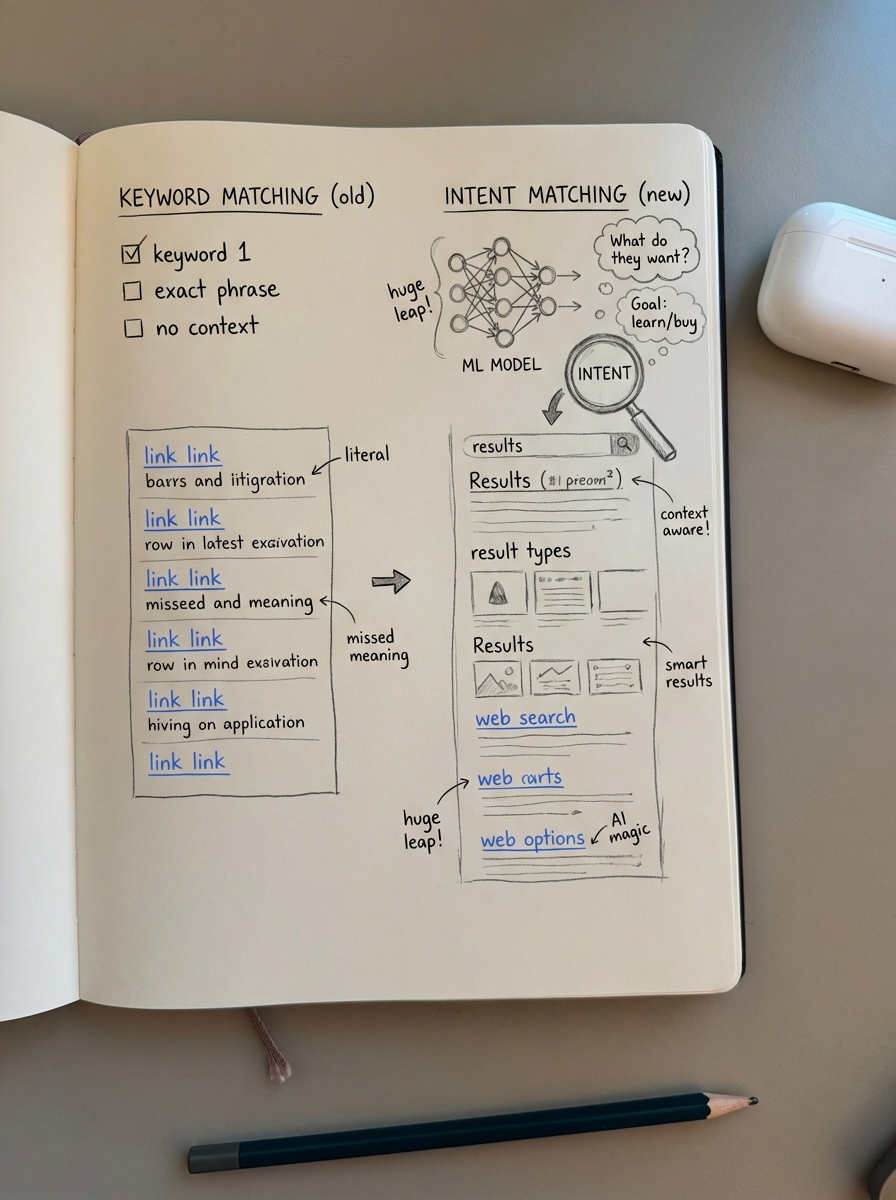 KEYWORD MATCHING (old)
keyword 1
exact phrase
no context
link link
barrs and iitigration
literal
link link
row in latest exaivation
link link
misseed and meaning
missed
meaning
link link
row in mind exsivation
link link
hiving on application
link link
INTENT MATCHING (new)
huge
leap!
What do
they want?
Goal:
learn/buy
ML MODEL
INTENT
results
Results
context
aware!
result types
Results
smart
results
web search
web carts
huge
leap!
web options
AI
magic